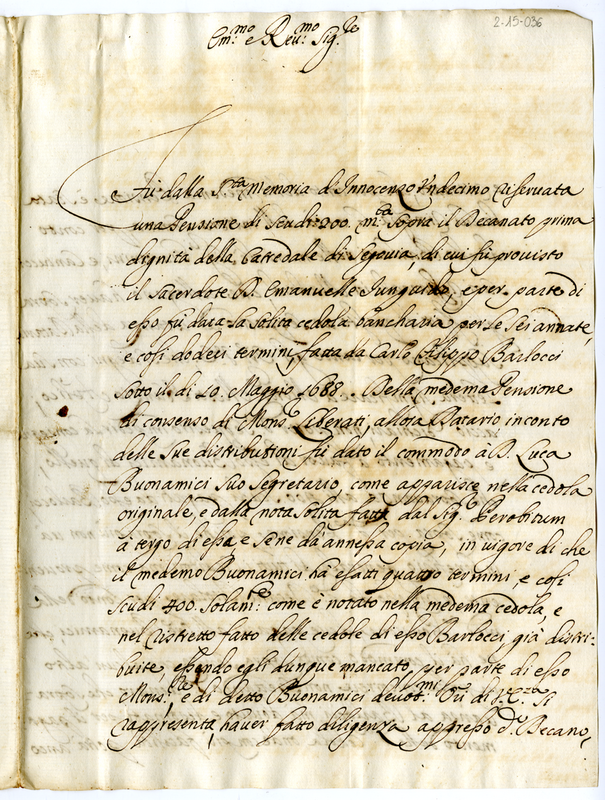 2-15-036
Em.mo e Reu.mo Sig.re
Fù dalla S.ta memoria d'Innocenzo Vndecimo riseruata
una Pensione di Scudi 200. m.ta sopra il Decanato prima
dignità della Catredale di Segouia, di cui fù prouisto
il Sacerdote D. Emanuelle Junguido, e per parte di
esso fù data la solita cedola bancharia per le sei annate,
e così dodeci termini fatta da Carlo Filippo Barlocci
sotto il dì 10. Maggio 1688. Della medema Pensione
di consenso di Mons.r Liberati, allora Datario in conto
delle sue distributioni fù dato il commodo à D. Luca
Buonamici suo Segretario, come apparisce nella cedola
originale, e dalla nota solita fatta dal Sig.r Perobicum
à tergo di essa e se ne dà annessa copia, in uigore di che
il medemo Buonamici hà esatti quattro termini, e così
scudi 400. solam.te come è notato nella medema cedola, e
nel ristretto fatto delle cedole di esso Barlocci già distri-
buite, essendo egli dunque mancato, per parte di esso
Mons.re e di detto Buonamici deuot.mi Or.i di V.E.za si
rappresenta, hauer fatto diligenza appresso d.o Decano,